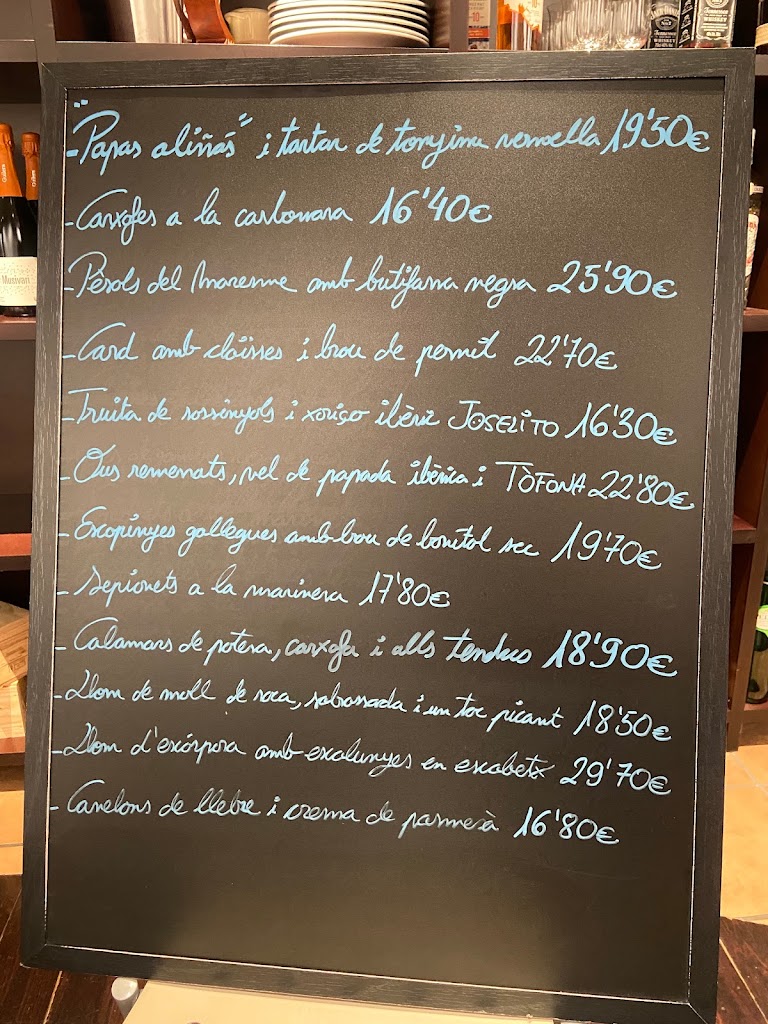 - "Papas aliñás" i tartar de tonyina vermella 19'50€
- Carxofes a la carbonara 16'40€
- Pèsols del Maresme amb butifarra negra 25'90€
- Card amb cloïsses i brou de pernil 22'70€
- Truita de rossinyols i xoriço ibèric JOSELITO 16'30€
- Ous remenats, vel de papada ibèrica i TÒFONA 22'80€
- Escopinyes gallegues amb brou de bonítol sec 19'70€
- Sepionets a la marinera 17'80€
- Calamars de potera, carxofa i alls tendres 18'90€
- Llom de moll de roca, sobrassada i un toc picant 18'50€
- Llom d'escórpora amb escalunyes en escabetx 29'70€
- Canelons de llebre i crema de parmesà 16'80€